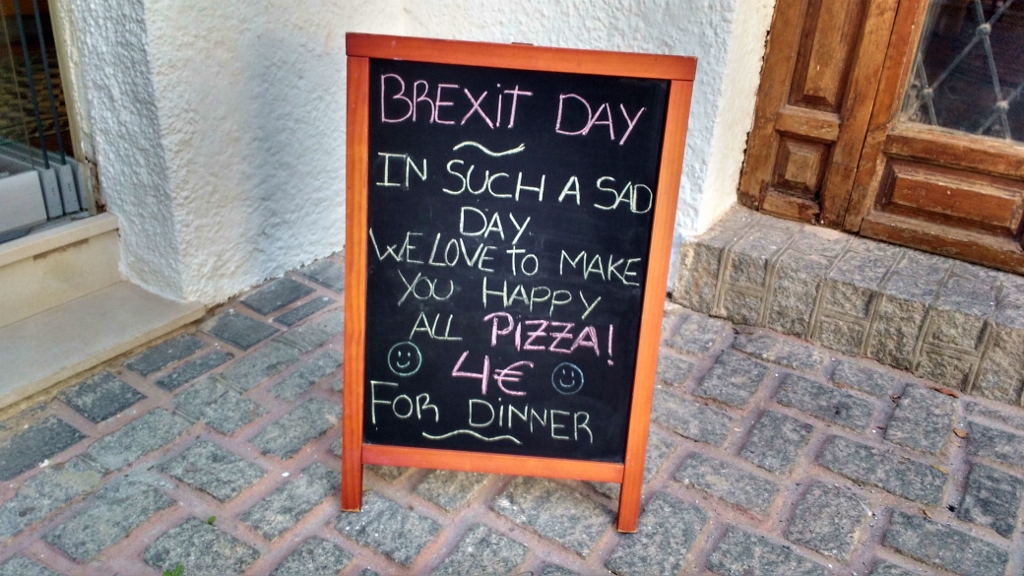 BREXIT DAY
IN SUCH A SAD
DAY.
WE LOVE TO MAKE
YOU HAPPY
ALL PIZZA!
4€
FOR DINNER